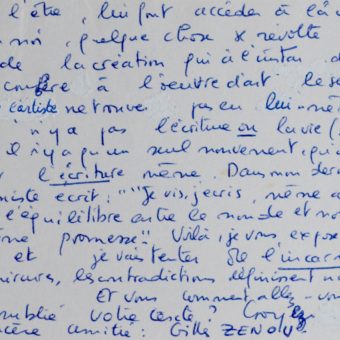 l'être, lui font accéder à la
moi, quelque chose se révolte
de la création qui à l'instar d
confère à l'oeuvre d'art le se
l'artiste ne trouve pas en lui-mêm
n'y a pas l'écriture ou la vie (
il n'y a qu'un seul mouvement, qui
l'écriture même. Dans mon der
iste écrit: "Je vis, j'écris, même
l'équilibre entre le monde et mo
me promesse". Voilà, je vous expose
et je vais tenter de l'incar
les contradictions définissent n
Et vous comment allez-vou
publié votre ? Croyez
cère amitié: Gilles ZENOU